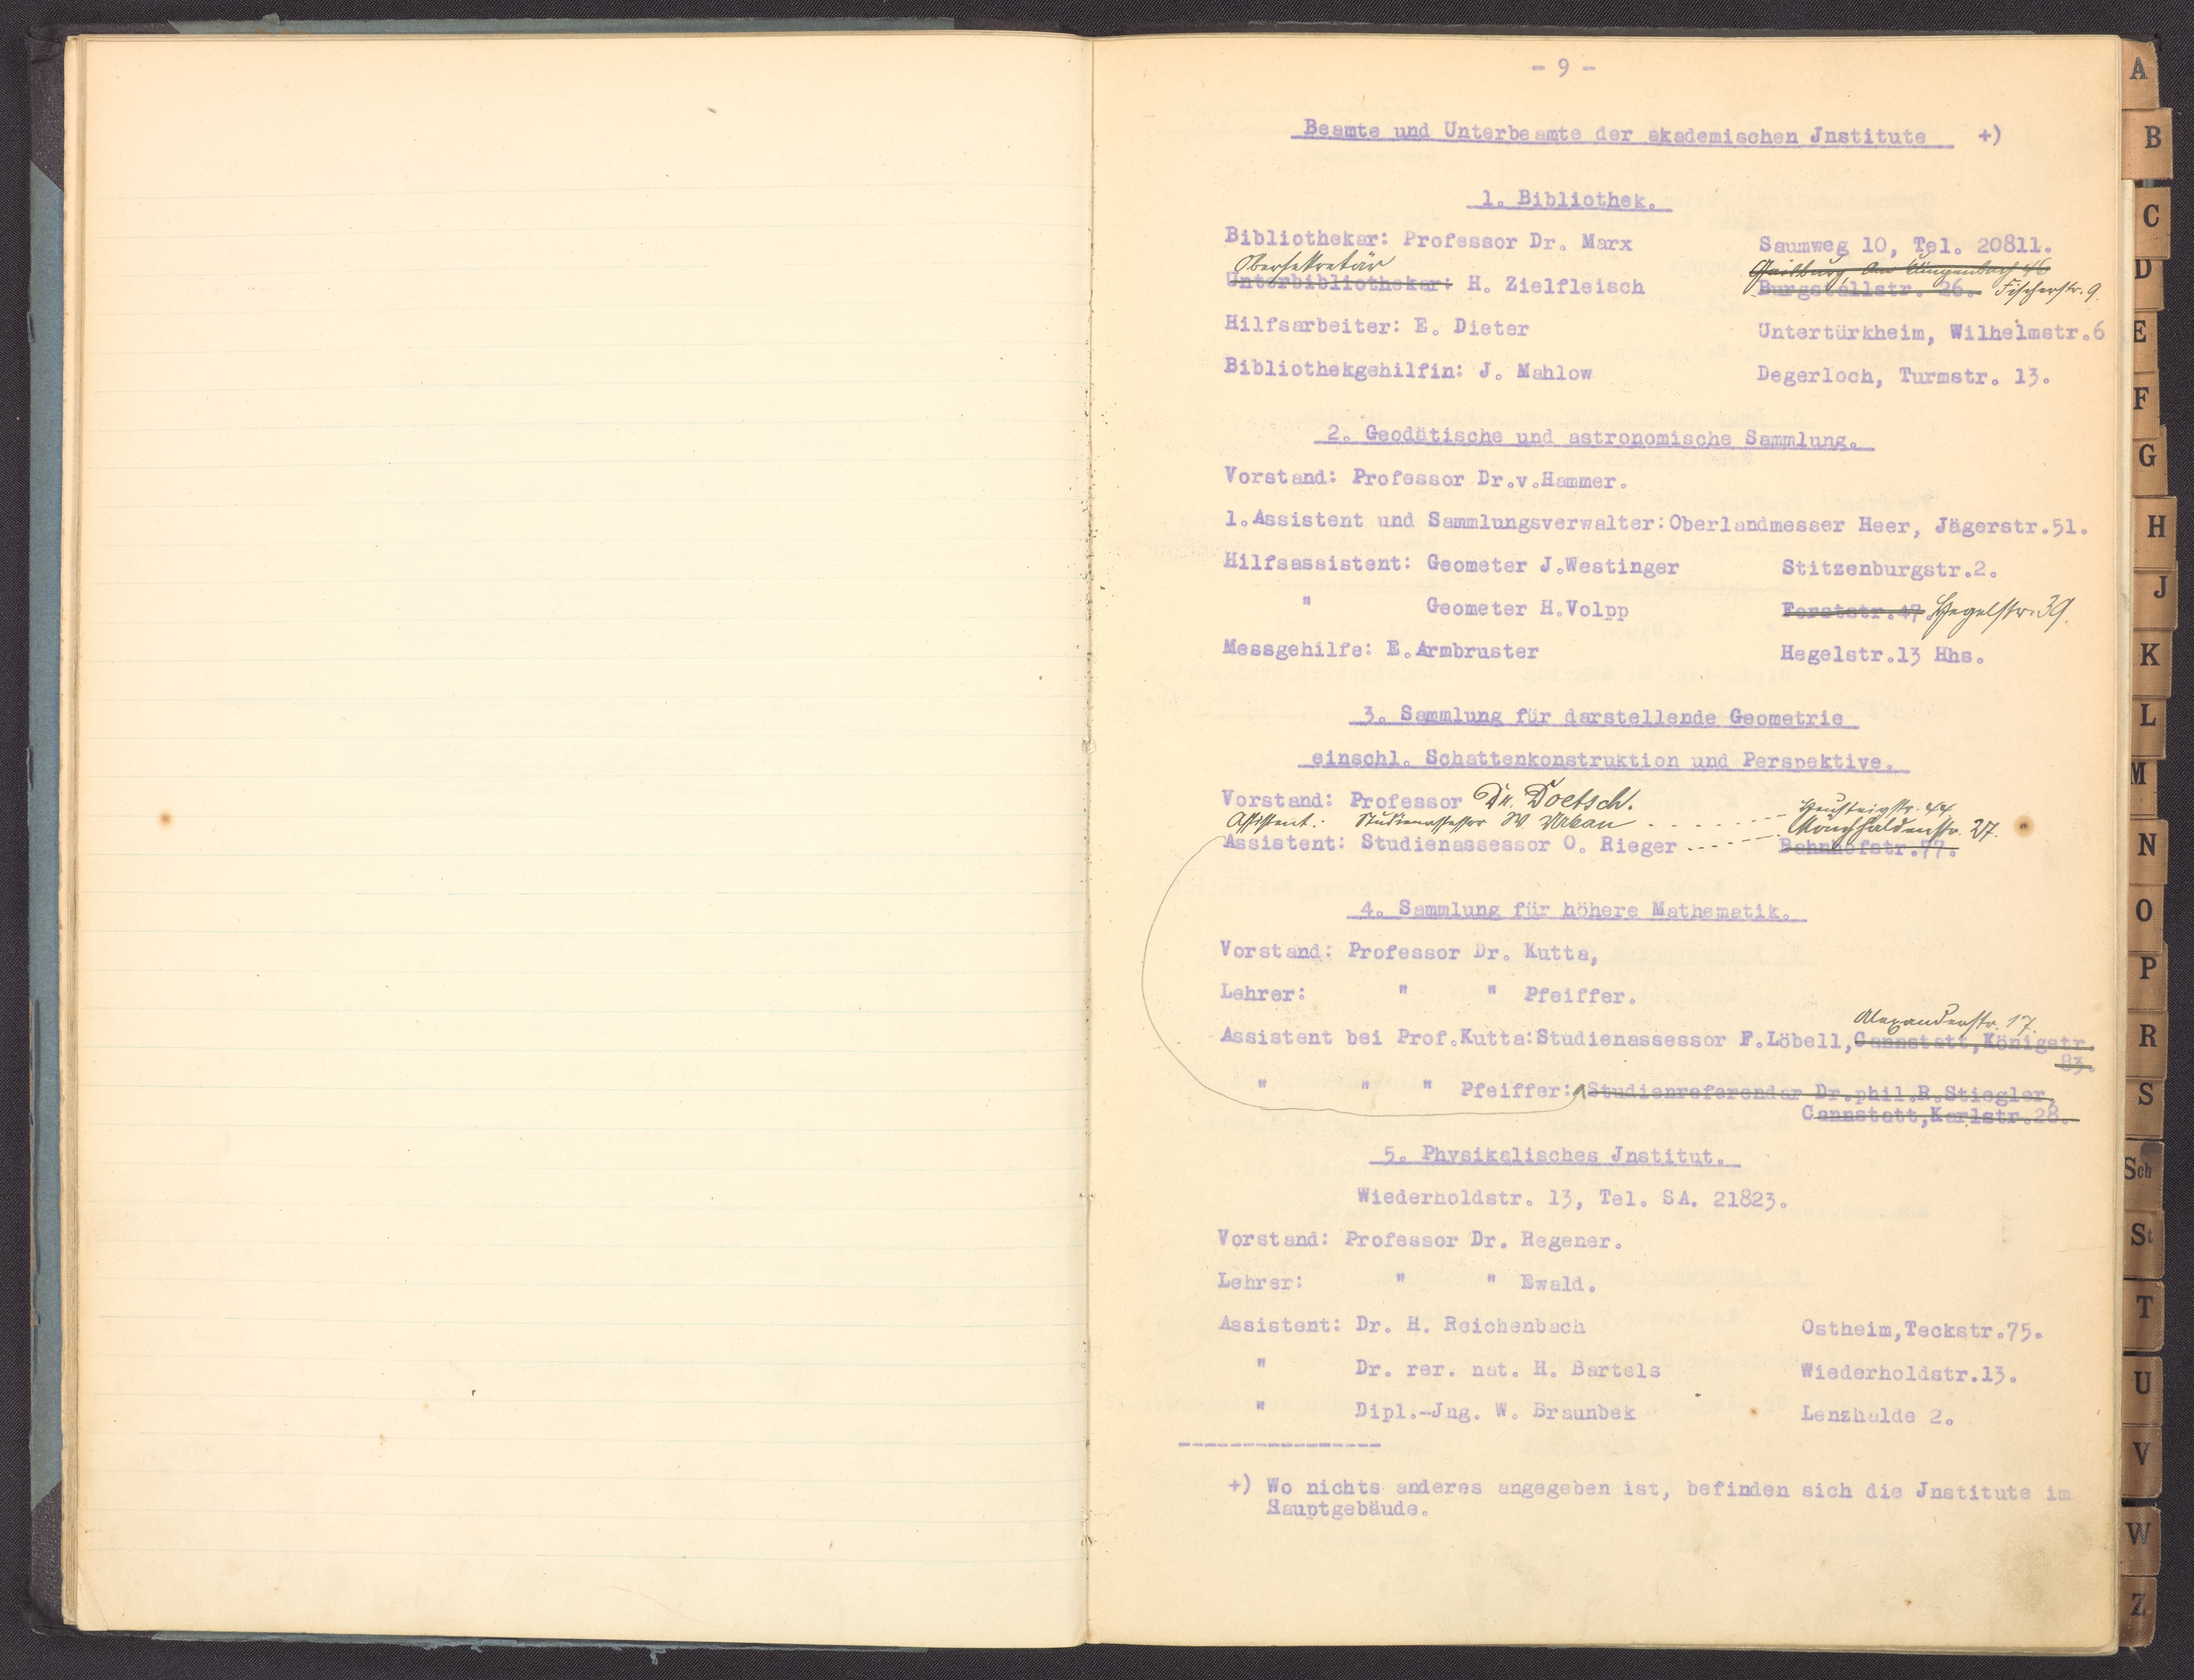 - 9 -
Beamte und Unterbeamte der akademischen Jnstitute +)
1. Bibliothek.
Bibliothekar: Professor Dr. Marx Saumweg 10, Tel. 20811.
Obersekretär
Unterbibliothekar: H. Zielfleisch Burgstallstr. 26. Fischerstr. 9.
Hilfsarbeiter: E. Dieter Untertürkheim, Wilhelmstr.6
Bibliothekgehilfin: J. Mahlow Degerloch, Turmstr. 13.
2. Geodätische und astronomische Sammlung.
Vorstand: Professor Dr.v.Hammer.
1.Assistent und Sammlungsverwalter:Oberlandmesser Heer, Jägerstr.51.
Hilfsassistent: Geometer J.Westinger Stitzenburgstr.2.
" Geometer H.Volpp Forststr.47 Hegelstr. 39.
Messgehilfe: E.Armbruster Hegelstr.13 Hhs.
3. Sammlung für darstellende Geometrie
einschl. Schattenkonstruktion und Perspektive.
Vorstand: Professor Dr. Doetsch.
Assistent: Studienassessor W Urban Heusteigstr. 44
Mönchhaldenstr. 27.
Assistent: Studienassessor O. Rieger Bahnhofstr.77.
4. Sammlung für höhere Mathematik.
Vorstand: Professor Dr. Kutta,
Lehrer: " " Pfeiffer.
Alexanderstr. 17.
Assistent bei Prof.Kutta:Studienassessor F.Löbell,Cannstatt,Königstr.
83.
" " " Pfeiffer: Studienreferendar Dr.phil.R.Stiegler,
Cannstatt,Karlstr.28.
5. Physikalisches Jnstitut.
Wiederholdstr. 13, Tel. SA. 21823.
Vorstand: Professor Dr. Regener.
Lehrer: " " Ewald.
Assistent: Dr. H. Reichenbach Ostheim,Teckstr.75.
" Dr. rer. nat. H. Bartels Wiederholdstr.13.
" Dipl.-Jng. W. Braunbek Lenzhalde 2.
+) Wo nichts anderes angegeben ist, befinden sich die Jnstitute im
Hauptgebäude.
A
B
C
D
E
F
G
H
J
K
L
M
N
O
P
R
S
Sch
St
T
U
V
W
Z